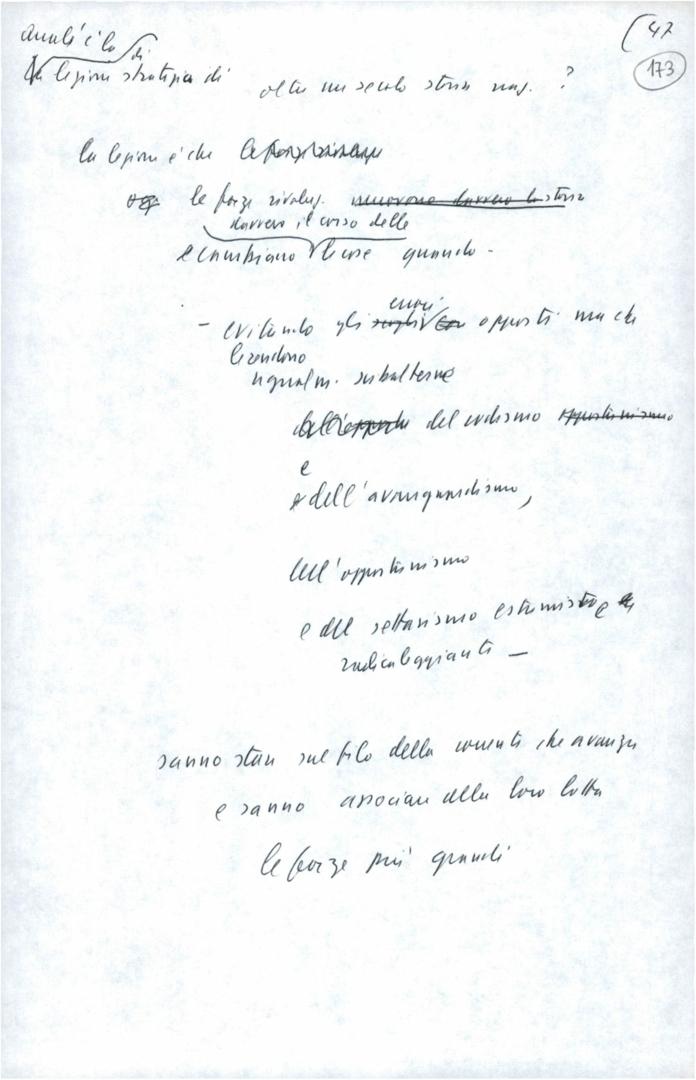 (47
173
Qual'è la di
La lezione strategica di oltre un secolo storia ?
la lezione è che
le forze rivoluz. muovono davvero la storia
davvero il corso delle
e cambiano le cose quando -
errori
- evitando gli opposti ma che
le rendono
ugualm. subalterne
del codismo opportunismo
e
e dell'avanguardismo,
dell'opportunismo
e del settarismo estremista e
radicaleggiante -
sanno stare sul filo della corrente che avanza
e sanno associare alla loro lotta
le forze più grandi